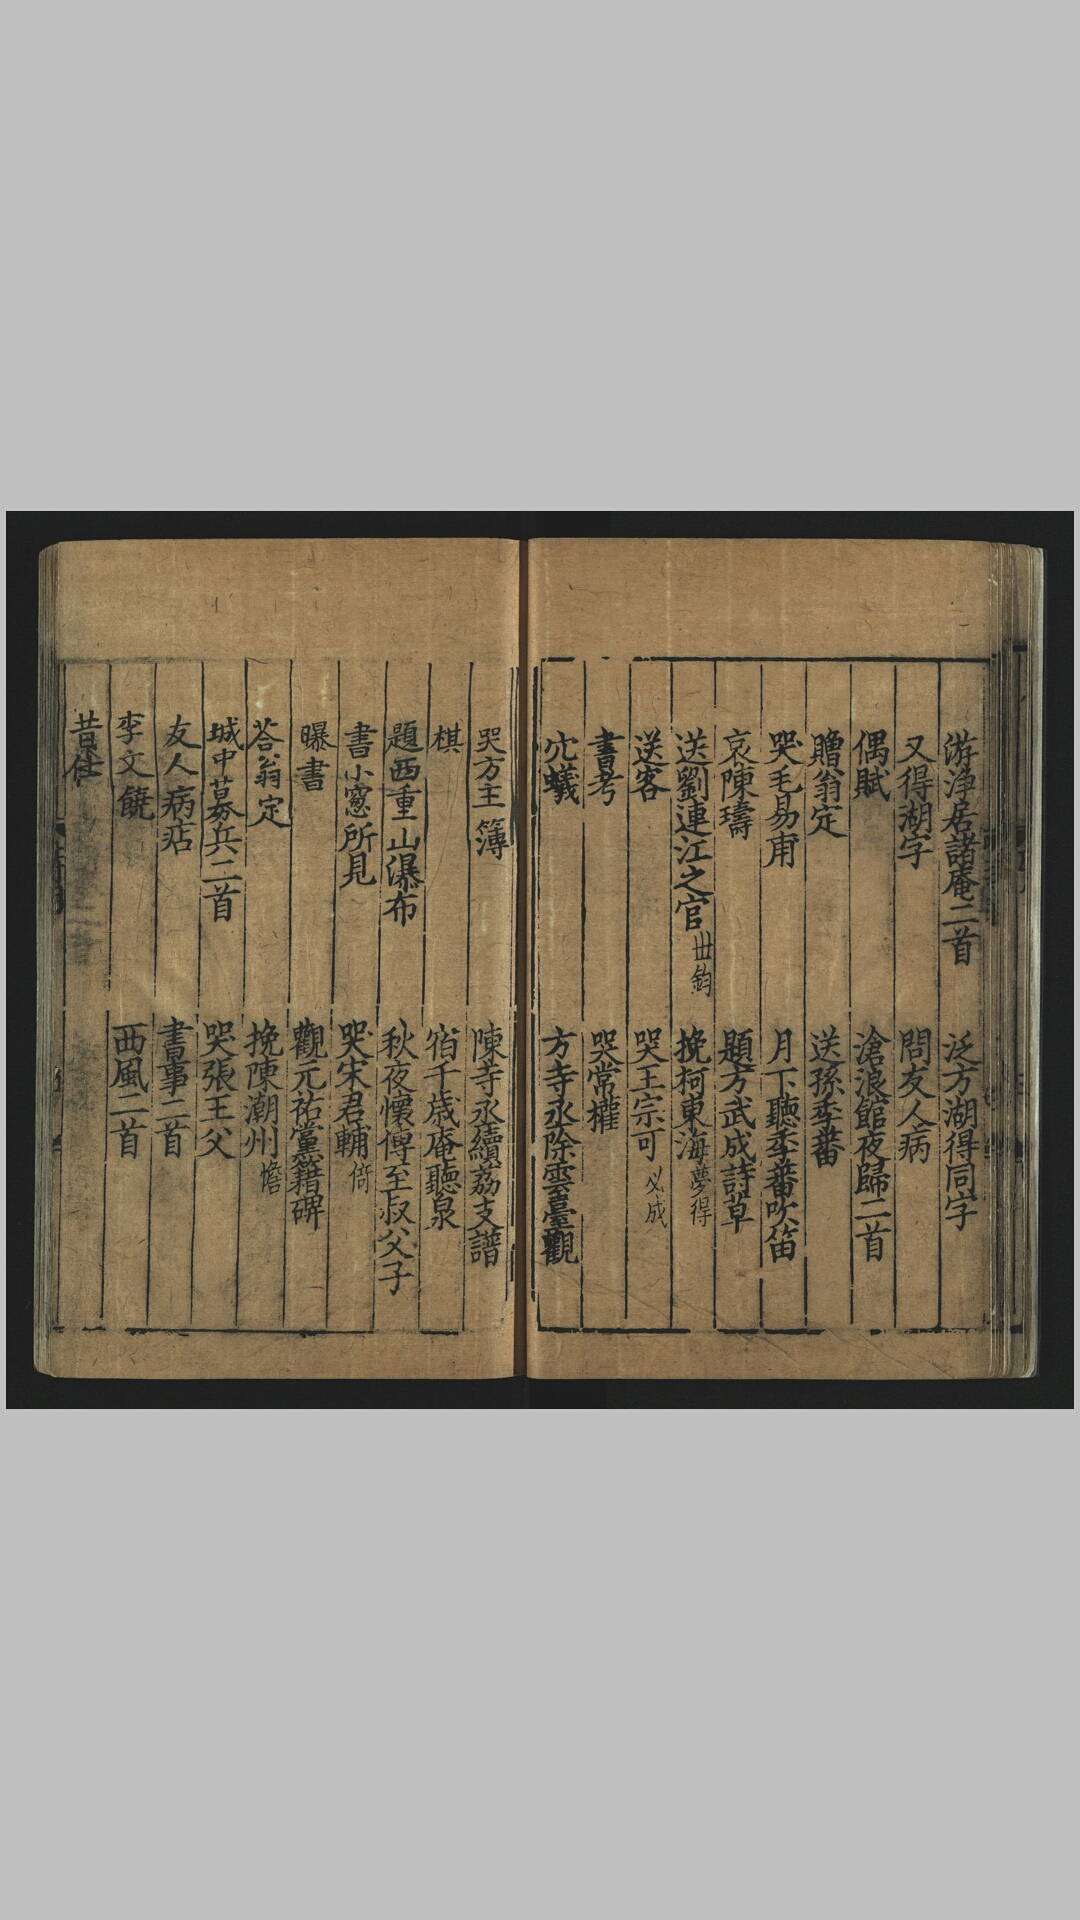 游淨居諸庵二首　泛方湖得同字
又得湖字　問友人病
偶賦　滄浪館夜歸二首
贈翁定　送孫季蕃
哭毛易甫　月下聽季蕃吹笛
哀陳璹　題方武成詩草
送劉連江之官丗鈞　挽柯東海夢得
送客　哭王宗可必成
書考　哭常權
穴蟻　方寺丞除雲臺觀
哭方主簿　陳寺丞續荔支譜
棋　宿千歲庵聽泉
題西重山瀑布　秋夜懷傅至叔父子
書小窻所見　哭宋君輔倚
曝書　觀元祐黨籍碑
荅翁定　挽陳潮州憺
城中募兵二首　哭張玉父
友人病痁　書事二首
李文饒　西風二首
昔仕